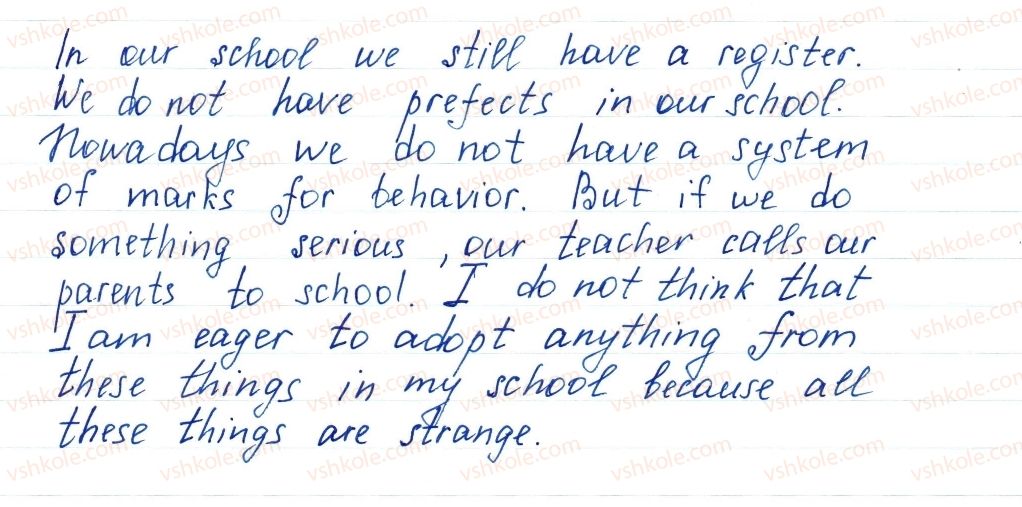 In our school we still have a register.
We do not have prefects in our school.
Nowadays we do not have a system
of marks for behavior. But if we do
something serious, our teacher calls our
parents to school. I do not think that
I am eager to adopt anything from
these things in my school because all
these things are strange.